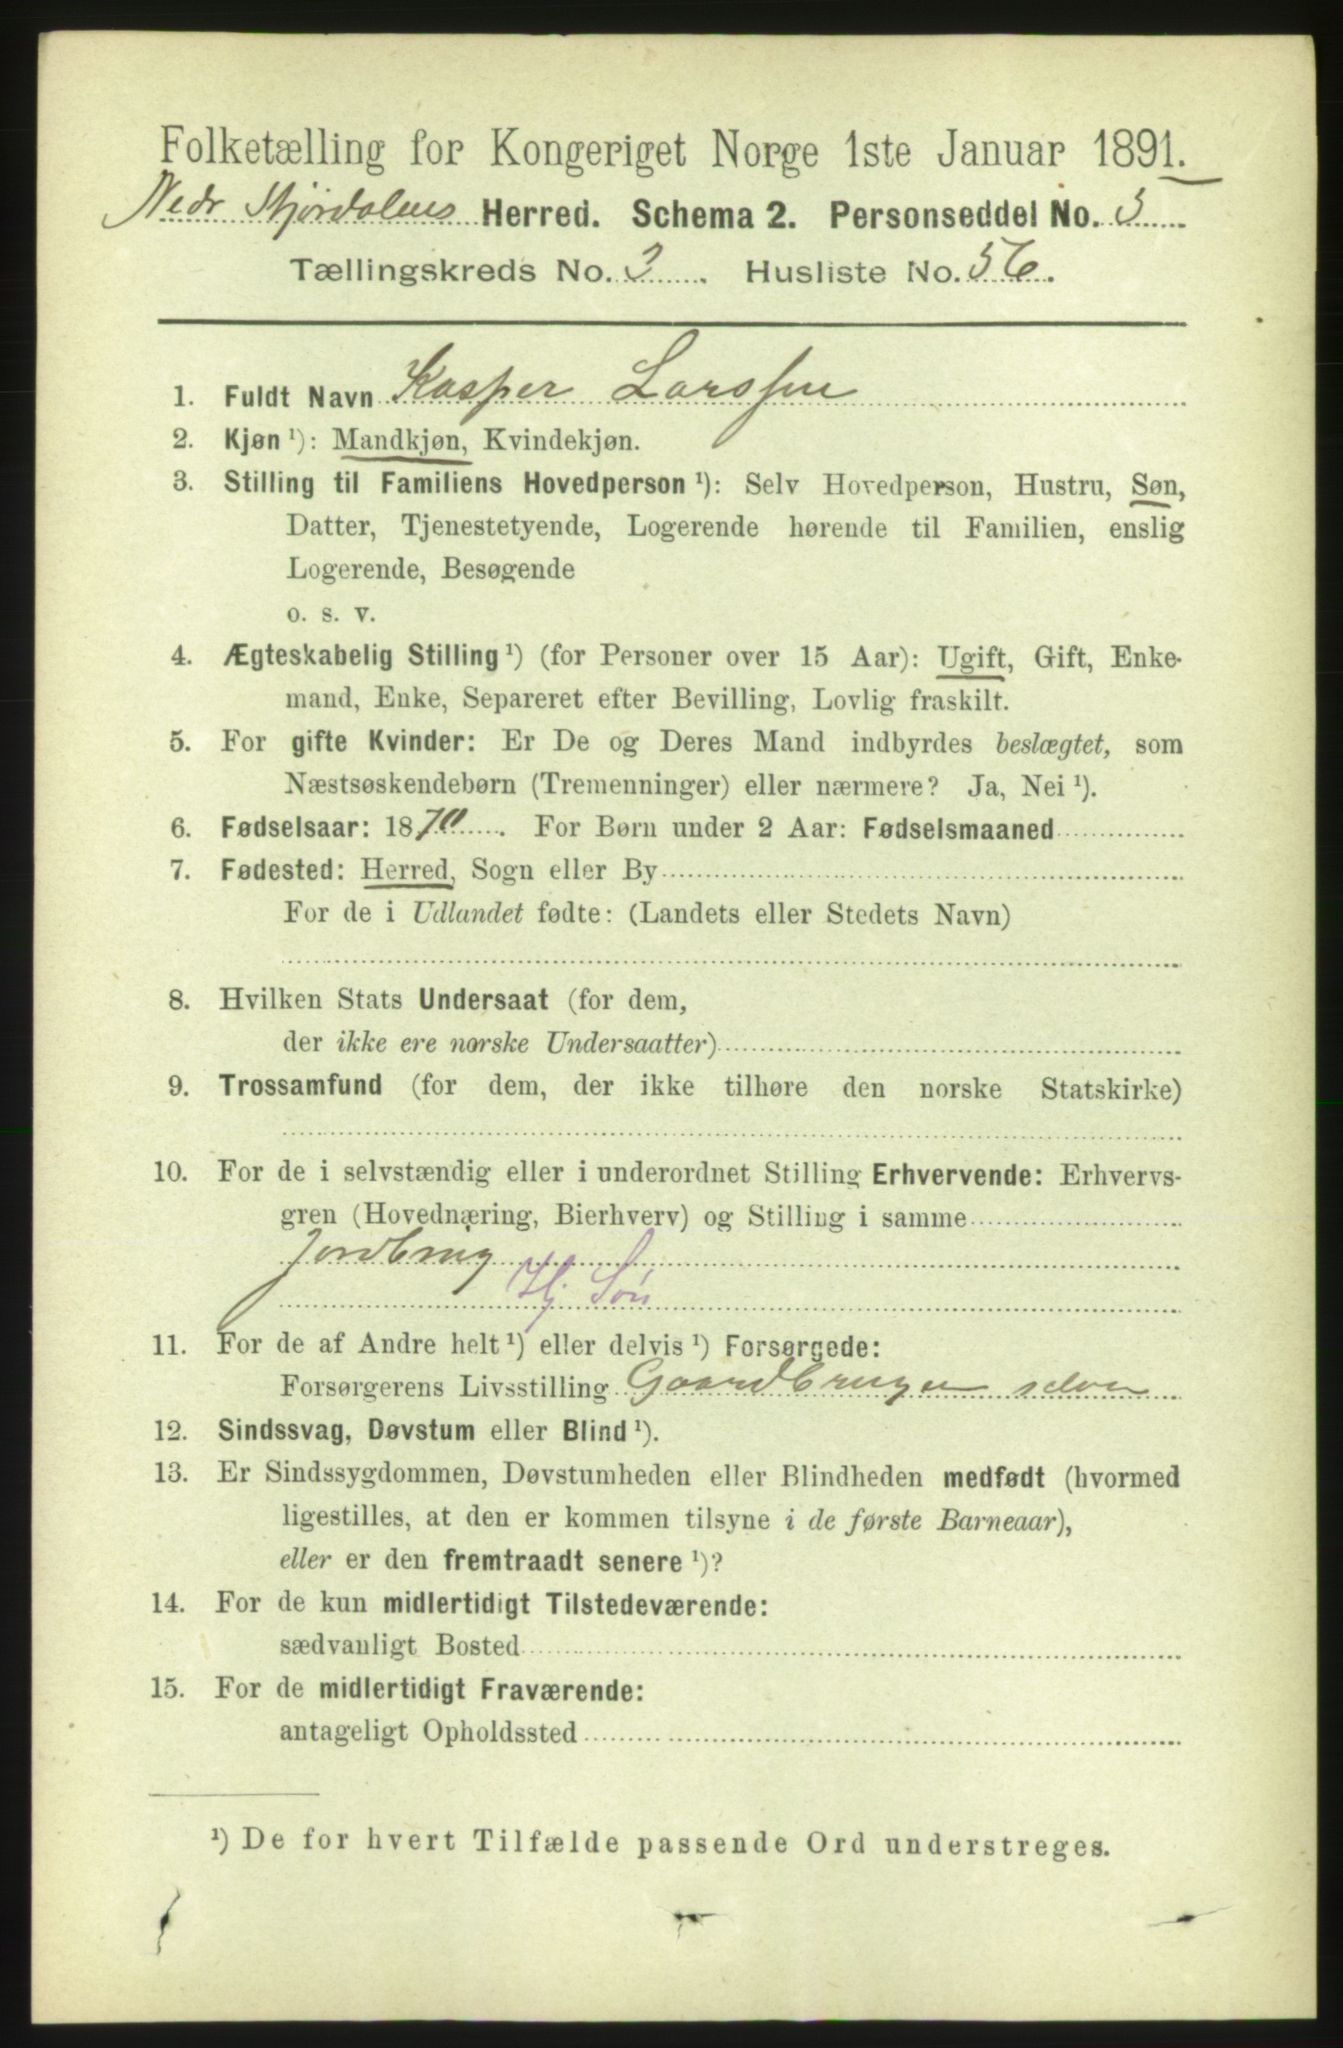 Folketælling for Kongeriget Norge 1ste Januar 1891.
Nedr Stjørdalens Herred. Schema 2. Personseddel No. 3
Tællingskreds No. 3. Husliste No. 56.
1. Fuldt Navn Kasper Larssen
2. Kjøn ¹): Mandkjøn, Kvindekjøn.
3. Stilling til Familiens Hovedperson ¹): Selv Hovedperson, Hustru, Søn,
Datter, Tjenestetyende, Logerende hørende til Familien, enslig
Logerende, Besøgende
o. s. v.
4. Ægteskabelig Stilling ¹) (for Personer over 15 Aar): Ugift, Gift, Enke-
mand, Enke, Separeret efter Bevilling, Lovlig fraskilt.
5. For gifte Kvinder: Er De og Deres Mand indbyrdes beslægtet, som
Næstsøskendebørn (Tremenninger) eller nærmere? Ja, Nei ¹).
6. Fødselsaar: 1870. For Børn under 2 Aar: Fødselsmaaned
7. Fødested: Herred, Sogn eller By
For de i Udlandet fødte: (Landets eller Stedets Navn)
8. Hvilken Stats Undersaat (for dem,
der ikke ere norske Undersaatter)
9. Trossamfund (for dem, der ikke tilhøre den norske Statskirke)
10. For de i selvstændig eller i underordnet Stilling Erhvervende: Erhvervs-
gren (Hovednæring, Bierhverv) og Stilling i samme
Jordbrug
Hj. Søn
11. For de af Andre helt ¹) eller delvis ¹) Forsørgede:
Forsørgerens Livsstilling Gaardbruger selver
12. Sindssvag, Døvstum eller Blind ¹).
13. Er Sindssygdommen, Døvstumheden eller Blindheden medfødt (hvormed
ligestilles, at den er kommen tilsyne i de første Barneaar),
eller er den fremtraadt senere ¹)?
14. For de kun midlertidigt Tilstedeværende:
sædvanligt Bosted
15. For de midlertidigt Fraværende:
antageligt Opholdssted
¹) De for hvert Tilfælde passende Ord understreges.